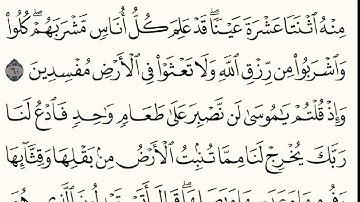 مِنْهُ ٱثْنَتَا عَشْرَةَ عَيْنًاۖ قَدْ عَلِمَ كُلُّ أُنَاسٍ مَّشْرَبَهُمْۖ كُلُوا۟
وَٱشْرَبُوا۟ مِن رِّزْقِ ٱللَّهِ وَلَا تَعْثَوْا۟ فِى ٱلْأَرْضِ مُفْسِدِينَ ٦٠
وَإِذْ قُلْتُمْ يَٰمُوسَىٰ لَن نَّصْبِرَ عَلَىٰ طَعَامٍ وَٰحِدٍ فَٱدْعُ لَنَا
رَبَّكَ يُخْرِجْ لَنَا مِمَّا تُنۢبِتُ ٱلْأَرْضُ مِنۢ بَقْلِهَا وَقِثَّآئِهَا
وَفُومِهَا وَعَدَسِهَا وَبَصَلِهَاۖ قَالَ أَتَسْتَبْدِلُونَ ٱلَّذِى هُوَ